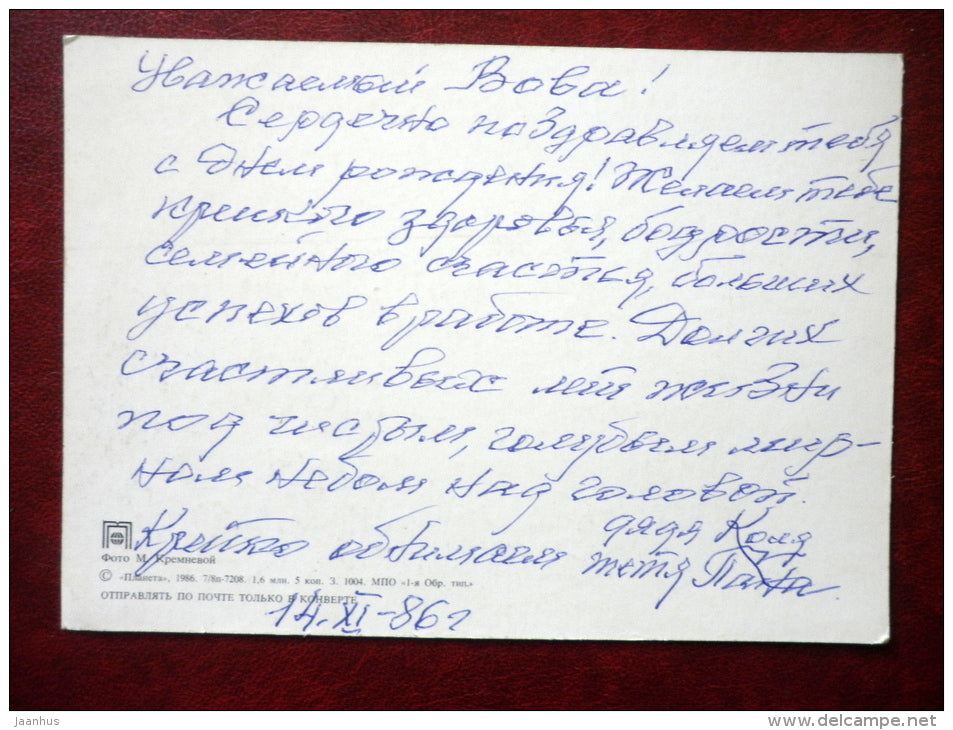 Уважаемый Вова!
Сердечно поздравляем тебя
с Днем рождения! Желаем тебе
крепкого здоровья, бодрости,
семейного счастья, больших
успехов в работе. Долгих
счастливых лет жизни
под чистым, голубым мир-
ным небом над головой.
Крепко обнимаем дядя Коля
тетя Паня.
14.XI-86г
Фото М. Кремневой
© «Планета», 1986. 7/8п-7208. 1,6 млн. 5 коп. З. 1004. МПО «1-я Обр. тип.»
ОТПРАВЛЯТЬ ПО ПОЧТЕ ТОЛЬКО В КОНВЕРТЕ
Jaanhus
www.delcampe.net